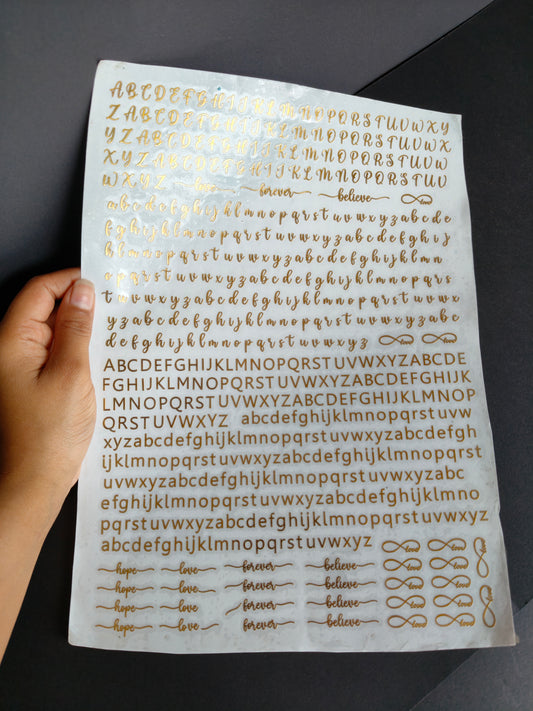 ABCDEFGHIJKLMNOPQRSTUVWXY
ZABCDEFGHIJKLMNOPQRSTUVWX
YZABCDEFGHIJKLMNOPQRSTUVW
XYZABCDEFGHIJKLMNOPQRSTUV
WXYZ love forever believe love
abcdefghijklmnopqrstuvwxyzabcde
fghijklmnopqrstuvwxyzabcdefghij
klmnopqrstuvwxyzabcdefghijklmn
opqrstuvwxyzabcdefghijklmnopqrs
tuvwxyzabcdefghijklmnopqrstuvwx
yzabcdefghijklmnopqrstuvwxyzabc
defghijklmnopqrstuvwxyz love love
ABCDEFGHIJKLMNOPQRSTUVWXYZABCDE
FGHIJKLMNOPQRSTUVWXYZABCDEFGHIJK
LMNOPQRSTUVWXYZABCDEFGHIJKLMNOP
QRSTUVWXYZ abcdefghijklmnopqrstuvw
xyzabcdefghijklmnopqrstuvwxyzabcdefgh
ijklmnopqrstuvwxyzabcdefghijklmnopqrst
uvwxyzabcdefghijklmnopqrstuvwxyzabcd
efghijklmnopqrstuvwxyzabcdefghijklmno
pqrstuvwxyzabcdefghijklmnopqrstuvwxyz
abcdefghijklmnopqrstuvwxyz love love love
hope love forever believe love love
hope love forever believe love love
hope love forever believe love love love
hope love forever believe love love